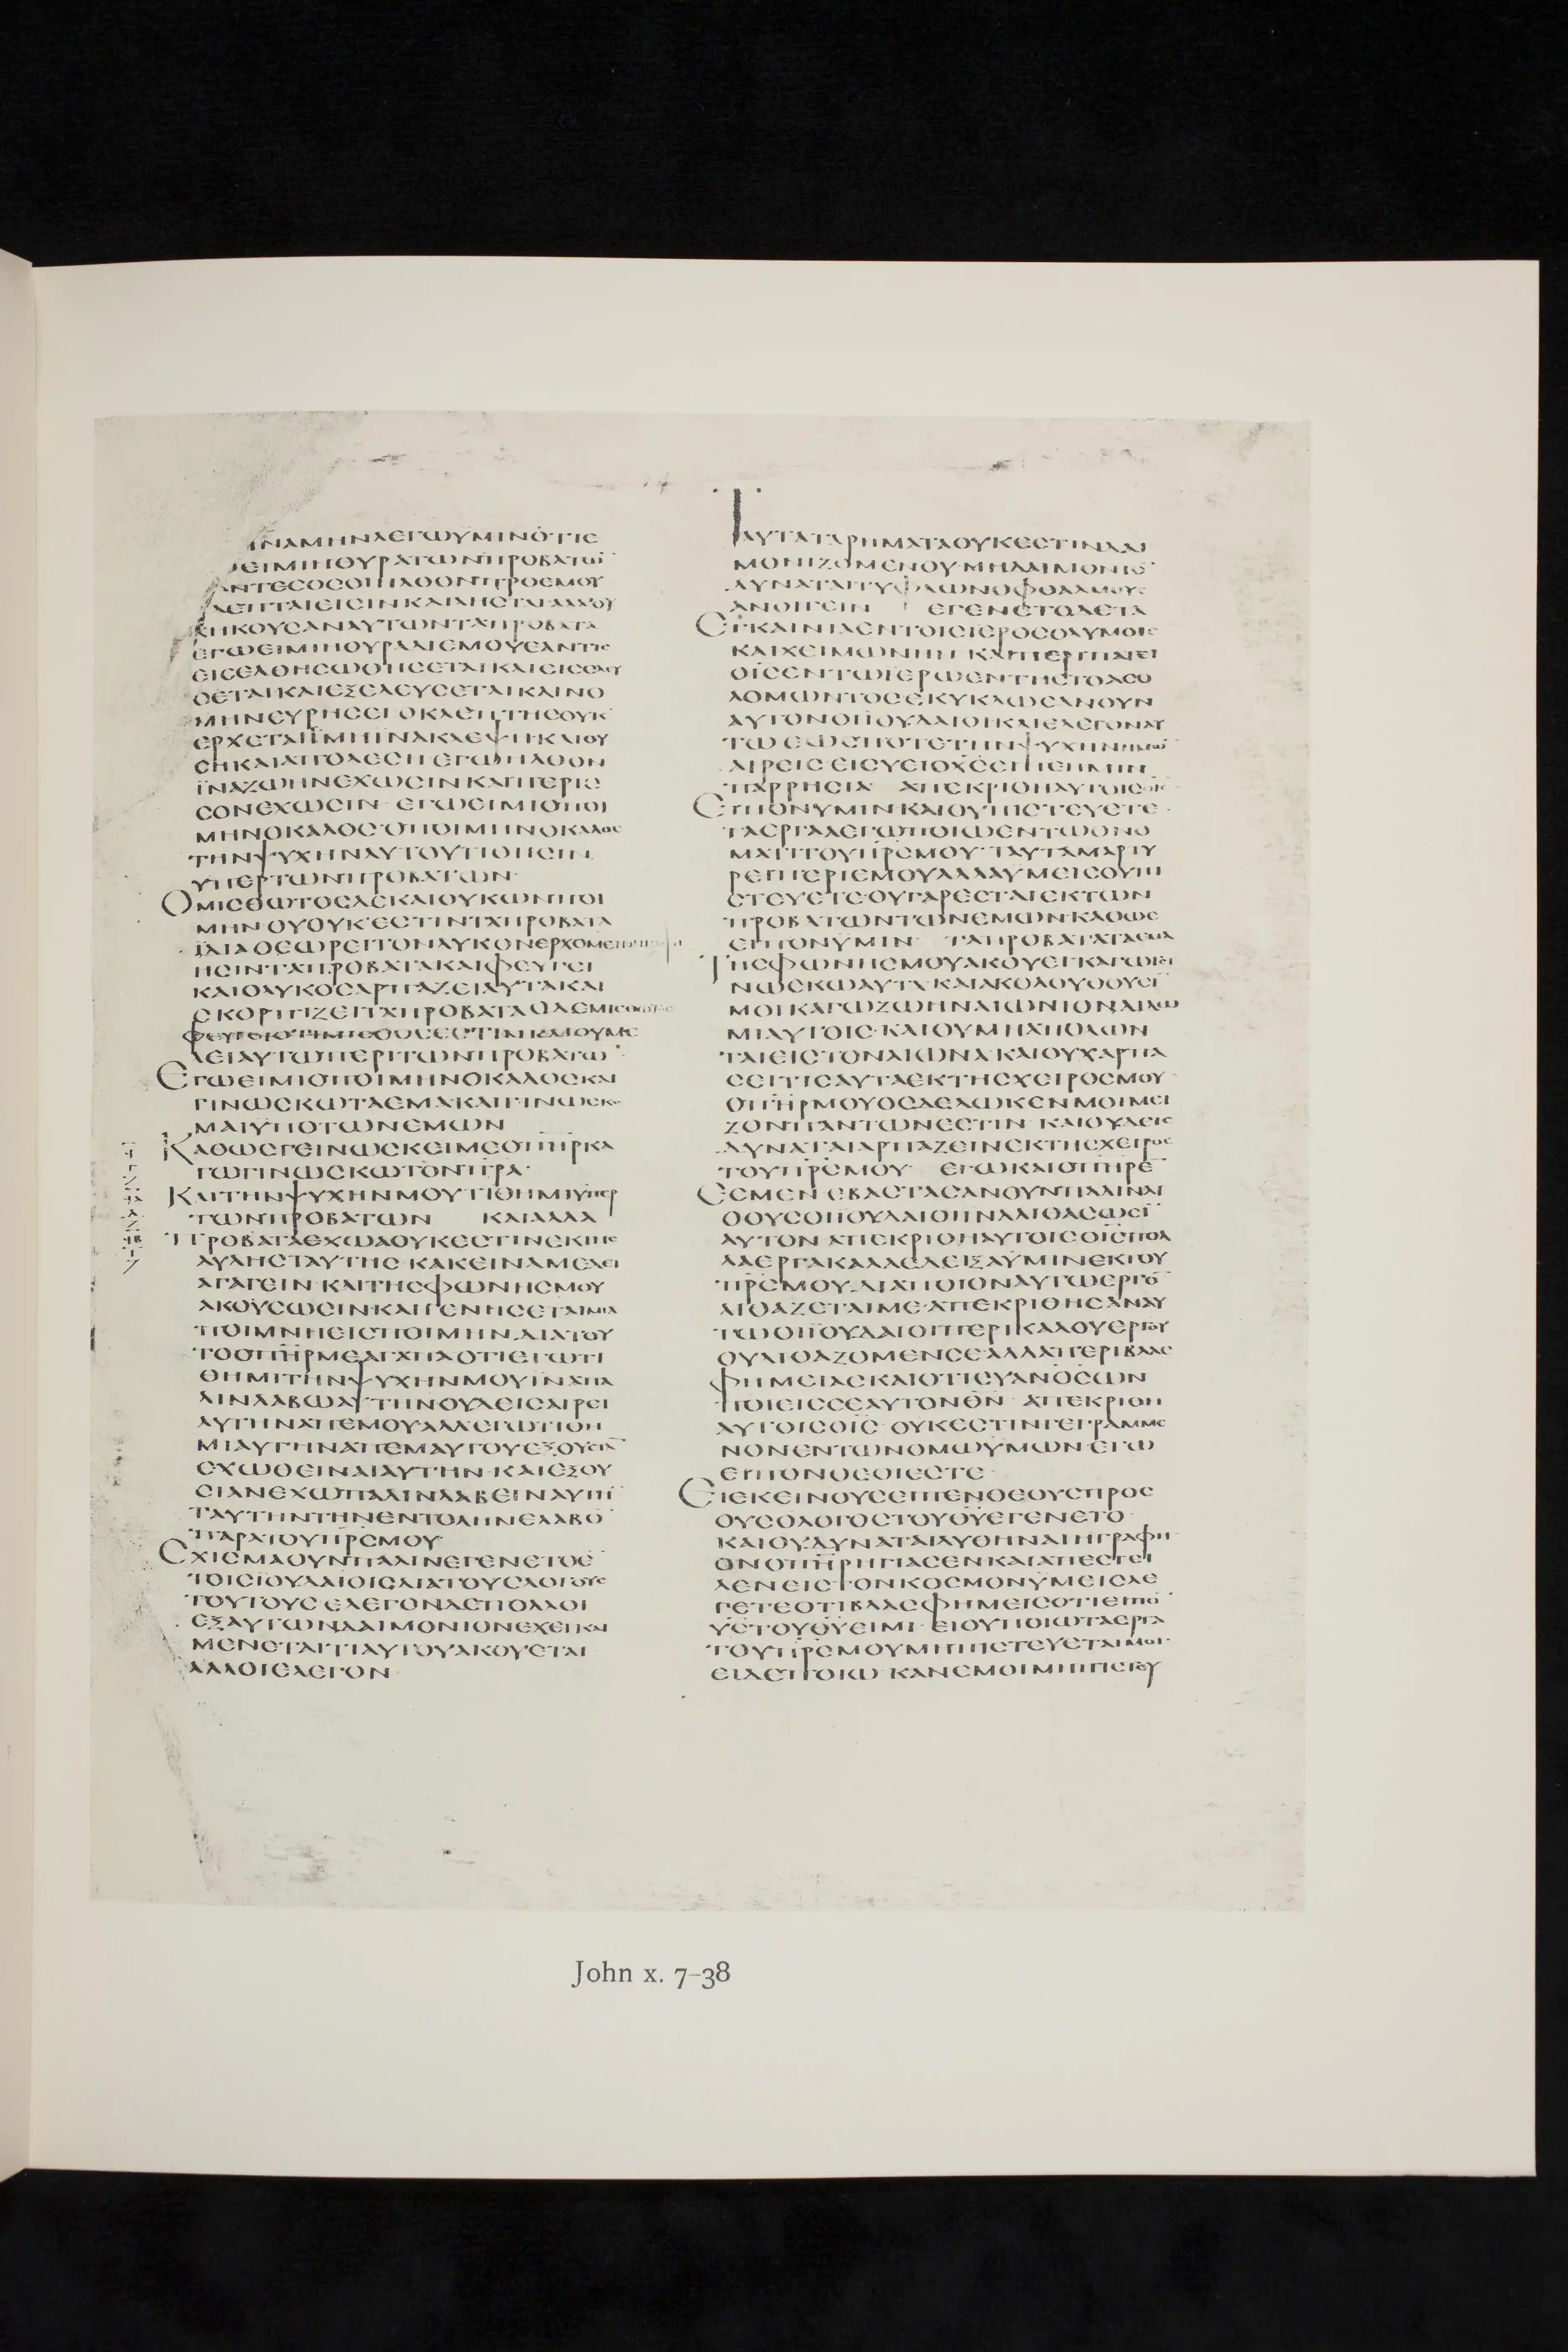 ΑΜΗΝΛΕΓΩΥΜΙΝΟΤΙΕ
ΕΙΜΙΗΟΥΡΑΤΩΝΠΡΟΒΑΤΩ̅
ΑΝΤΕϹΟϹΟΙΗΛΘΟΝΠΡΟΕΜΟΥ
ΚΛΕΠΤΑΙΕΙϹΙΝΚΑΙΛΗϹΤΑΙΑΛΛΟΥ
ΚΗΚΟΥϹΑΝΑΥΤΩΝΤΑΠΡΟΒΑΤΑ
ΕΓΩΕΙΜΙΗΟΥΡΑΔΙΕΜΟΥΕΑΝΤΙϹ
ΕΙϹΕΛΘΗϹΩΘΗϹΕΤΑΙΚΑΙΕΙϹΕΛΕΥ
ϹΕΤΑΙΚΑΙΕΞΕΛΕΥϹΕΤΑΙΚΑΙΝΟ
ΜΗΝΕΥΡΗϹΕΙ ΟΚΛΕΠΤΗϹΟΥΚ
ΕΡΧΕΤΑΙΕΙΜΗΪΝΑΚΛΕΨΗΚΑΙΘΥ
ϹΗΚΑΙΑΠΟΛΕϹΗ ΕΓΩΗΛΘΟΝ
ΪΝΑΖΩΗΝΕΧΩϹΙΝΚΑΙΠΕΡΙϹ
ϹΟΝΕΧΩϹΙΝ ΕΓΩΕΙΜΙΟΠΟΙ
ΜΗΝΟΚΑΛΟϹ·ΟΠΟΙΜΗΝΟΚΑΛΟϹ
ΤΗΝΨΥΧΗΝΑΥΤΟΥΤΙΘΗϹΙΝ
ΥΠΕΡΤΩΝΠΡΟΒΑΤΩΝ·
ΟΜΙϹΘΩΤΟϹΔΕΚΑΙΟΥΚΩΝΠΟΙ
ΜΗΝΟΥΟΥΚΕϹΤΙΝΤΑΠΡΟΒΑΤΑ
ΪΔΙΑΘΕΩΡΕΙΤΟΝΛΥΚΟΝΕΡΧΟΜΕΝΟΝ
ΗϹΙΝΤΑΠΡΟΒΑΤΑΚΑΙΦΕΥΓΕΙ
ΚΑΙΟΛΥΚΟϹΑΡΠΑΖΕΙΑΥΤΑΚΑΙ
ϹΚΟΡΠΙΖΕΙΤΑΠΡΟΒΑΤΑΟΔΕΜΙϹΘΩΤΟϹ
ΦΕΥΓΕΙΟΤΙΜΙϹΘΩΤΟϹΕϹΤΙΝΚΑΙΟΥΜΕ
ΛΕΙΑΥΤΩΠΕΡΙΤΩΝΠΡΟΒΑΤΩ̅·
ΕΓΩΕΙΜΙΟΠΟΙΜΗΝΟΚΑΛΟϹΚΑΙ
ΓΙΝΩϹΚΩΤΑΕΜΑΚΑΙΓΙΝΩϹΚΟ
ΜΑΙΥΠΟΤΩΝΕΜΩΝ
ΚΑΘΩϹΓΕΙΝΩϹΚΕΙΜΕΟΠΗΡΚΑ
ΓΩΓΙΝΩϹΚΩΤΟΝΠΡΑ·
ΚΑΙΤΗΝΨΥΧΗΝΜΟΥΤΙΘΗΜΙΥΠΕΡ
ΤΩΝΠΡΟΒΑΤΩΝ ΚΑΙΑΛΛΑ
ΠΡΟΒΑΤΑΕΧΩΑΟΥΚΕϹΤΙΝΕΚΤΗϹ
ΑΥΛΗϹΤΑΥΤΗϹ·ΚΑΚΕΙΝΑΜΕΔΕΙ
ΑΓΑΓΕΙΝ·ΚΑΙΤΗϹΦΩΝΗϹΜΟΥ
ΑΚΟΥϹΩϹΙΝ·ΚΑΙΓΕΝΗϹΕΤΑΙΜΙΑ
ΠΟΙΜΝΗΕΙϹΠΟΙΜΗΝ·ΔΙΑΤΟΥ
ΤΟΟΠΗΡΜΕΑΓΑΠΑΟΤΙΕΓΩΤΙ
ΘΗΜΙΤΗΝΨΥΧΗΝΜΟΥΙΝΑΠΑ
ΛΙΝΛΑΒΩΑΥΤΗΝΟΥΔΕΙϹΑΙΡΕΙ
ΑΥΤΗΝΑΠΕΜΟΥΑΛΛΕΓΩΤΙΘΗ
ΜΙΑΥΤΗΝΑΠΕΜΑΥΤΟΥΕΞΟΥϹΙΑ̅
ΕΧΩΘΕΙΝΑΙΑΥΤΗΝ·ΚΑΙΕΞΟΥ
ϹΙΑΝΕΧΩΠΑΛΙΝΛΑΒΕΙΝΑΥΤΗ̅
ΤΑΥΤΗΝΤΗΝΕΝΤΟΛΗΝΕΛΑΒΟ̅
ΠΑΡΑΤΟΥΠΡϹΜΟΥ
ϹΧΙϹΜΑΟΥΝΠΑΛΙΝΕΓΕΝΕΤΟΕ̅
ΤΟΙϹΪΟΥΔΑΙΟΙϹΔΙΑΤΟΥϹΛΟΓΟΥϹ
ΤΟΥΤΟΥϹ·ΕΛΕΓΟΝΔΕΠΟΛΛΟΙ
ΕΞΑΥΤΩΝΔΑΙΜΟΝΙΟΝΕΧΕΙΚΑΙ
ΜΕΝΕΤΑΙΤΙΑΥΤΟΥΑΚΟΥΕΤΑΙ
ΑΛΛΟΙΕΛΕΓΟΝ
ΤΑΥΤΑΤΑΡΗΜΑΤΑΟΥΚΕϹΤΙΝΔΑΙ
ΜΟΝΙΖΟΜΕΝΟΥ·ΜΗΔΑΙΜΟΝΙΟ̅
ΔΥΝΑΤΑΙΤΥΦΛΩΝΟΦΘΑΛΜΟΥϹ
ΑΝΟΙΓΕΙΝ ΕΓΕΝΕΤΟΔΕΤΑ
ΕΓΚΑΙΝΙΑΕΝΤΟΙϹΙΕΡΟϹΟΛΥΜΟΙϹ
ΚΑΙΧΕΙΜΩΝΗΝ ΚΑΙΠΕΡΙΠΑΤΕΙ
ΟΙϹΕΝΤΩΙΕΡΩΕΝΤΗϹΤΟΑϹΟ
ΛΟΜΩΝΤΟϹΕΚΥΚΛΩϹΑΝΟΥΝ
ΑΥΤΟΝΟΙΙΟΥΔΑΙΟΙΚΑΙΕΛΕΓΟΝΑΥ
ΤΩ ΕΩϹΠΟΤΕΤΗΝΨΥΧΗΝΗΜΩ̅
ΑΙΡΕΙϹ·ΕΙϹΥΕΙΟΧϹΕΙΠΕΗΜΙΝ
ΠΑΡΡΗϹΙΑ ΑΠΕΚΡΙΘΗΑΥΤΟΙϹΟΙϹ
ΕΙΠΟΝΥΜΙΝΚΑΙΟΥΠΙϹΤΕΥΕΤΕ
ΤΑΕΡΓΑΑΕΓΩΠΟΙΩΕΝΤΩΟΝΟ
ΜΑΤΙΤΟΥΠΡϹΜΟΥ·ΤΑΥΤΑΜΑΡΤΥ
ΡΕΙΠΕΡΙΕΜΟΥΑΛΛΑΥΜΕΙϹΟΥΠΙ
ϹΤΕΥΕΤΕ·ΟΥΓΑΡΕϹΤΑΙΕΚΤΩΝ
ΠΡΟΒΑΤΩΝΤΩΝΕΜΩΝ·ΚΑΘΩϹ
ΕΙΠΟΝΥΜΙΝ ΤΑΠΡΟΒΑΤΑΤΑΕΜΑ
ΤΗϹΦΩΝΗϹΜΟΥΑΚΟΥΕΙ·ΚΑΓΩΓΙ
ΝΩϹΚΩΑΥΤΑ·ΚΑΙΑΚΟΛΟΥΘΟΥϹΙ̅
ΜΟΙ·ΚΑΓΩΖΩΗΝΑΙΩΝΙΟΝΔΙΔΩ
ΜΙΑΥΤΟΙϹ·ΚΑΙΟΥΜΗΑΠΟΛΩΝ
ΤΑΙΕΙϹΤΟΝΑΙΩΝΑ·ΚΑΙΟΥΧΑΡΠΑ
ϹΕΙΤΙϹΑΥΤΑΕΚΤΗϹΧΕΙΡΟϹΜΟΥ·
ΟΠΗΡΜΟΥΟϹΔΕΔΩΚΕΝΜΟΙΜΕΙ
ΖΟΝΠΑΝΤΩΝΕϹΤΙΝ·ΚΑΙΟΥΔΕΙϹ
ΔΥΝΑΤΑΙΑΡΠΑΖΕΙΝΕΚΤΗϹΧΕΙΡΟϹ
ΤΟΥΠΡϹΜΟΥ· ΕΓΩΚΑΙΟΠΗΡΕ̅
ΕϹΜΕΝ·ΕΒΑϹΤΑϹΑΝΟΥΝΠΑΛΙΝΛΙ
ΘΟΥϹΟΙΪΟΥΔΑΙΟΙΙΝΑΛΙΘΑϹΩϹΙ̅
ΑΥΤΟΝ·ΑΠΕΚΡΙΘΗΑΥΤΟΙϹΟΙϹΠΟΛ
ΛΑΕΡΓΑΚΑΛΑΕΔΕΙΞΑΥΜΙΝΕΚΤΟΥ
ΠΡϹΜΟΥ·ΔΙΑΠΟΙΟΝΑΥΤΩΕΡΓΟ̅
ΛΙΘΑΖΕΤΑΙΜΕ·ΑΠΕΚΡΙΘΗϹΑΝΑΥ
ΤΩΟΙΪΟΥΔΑΙΟΙΠΕΡΙΚΑΛΟΥΕΡΓΟΥ
ΟΥΛΙΘΑΖΟΜΕΝϹΕΑΛΛΑΠΕΡΙΒΛΑϹ
ΦΗΜΕΙΑϹΚΑΙΟΤΙϹΥΑΝΟϹΩΝ
ΠΟΙΕΙϹϹΕΑΥΤΟΝΘΝ· ΑΠΕΚΡΙΘΗ
ΑΥΤΟΙϹΟΙϹ·ΟΥΚΕϹΤΙΝΓΕΓΡΑΜΜΕ
ΝΟΝΕΝΤΩΝΟΜΩΥΜΩΝ·ΕΓΩ
ΕΙΠΟΝΘΕΟΙΕϹΤΕ·
ΕΙΕΚΕΙΝΟΥϹΕΙΠΕΝΘΕΟΥϹΠΡΟϹ
ΟΥϹΟΛΟΓΟϹΤΟΥΘΥΕΓΕΝΕΤΟ
ΚΑΙΟΥΔΥΝΑΤΑΙΛΥΘΗΝΑΙΗΓΡΑΦΗ·
ΟΝΟΠΗΡΗΓΙΑϹΕΝΚΑΙΑΠΕϹΤΕΙ
ΛΕΝΕΙϹΤΟΝΚΟϹΜΟΝΥΜΕΙϹΛΕ
ΓΕΤΕΟΤΙΒΛΑϹΦΗΜΕΙϹΟΤΙΕΙΠΟ̅
ΥϹΤΟΥΘΥΕΙΜΙ· ΕΙΟΥΠΟΙΩΤΑΕΡΓΑ
ΤΟΥΠΡϹΜΟΥΜΗΠΙϹΤΕΥΕΤΑΙΜΟΙ·
ΕΙΔΕΠΟΙΩ·ΚΑΝΕΜΟΙΜΗΠΙϹΤΕΥ
John x. 7–38